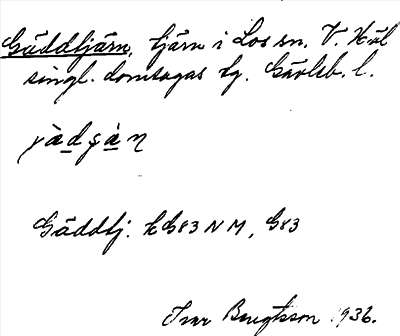 Gäddtjärn, tjärn i Los sn. V. Häl
singl. domsagas tg. Gävleb. l.
Gäddtj. EG83 NM, G83
Ivar Bengtsson 1936.